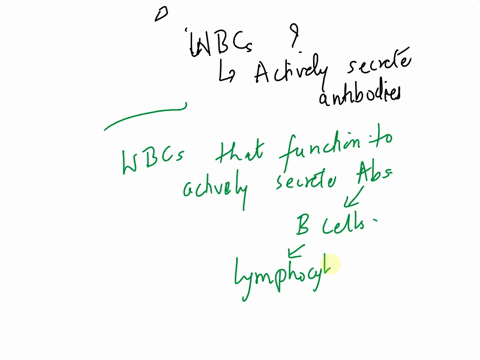 WBCs ?
↳ Actively secrete
antibodies
WBCs that function to
actively secrete Abs
B cells.
Lymphocyt